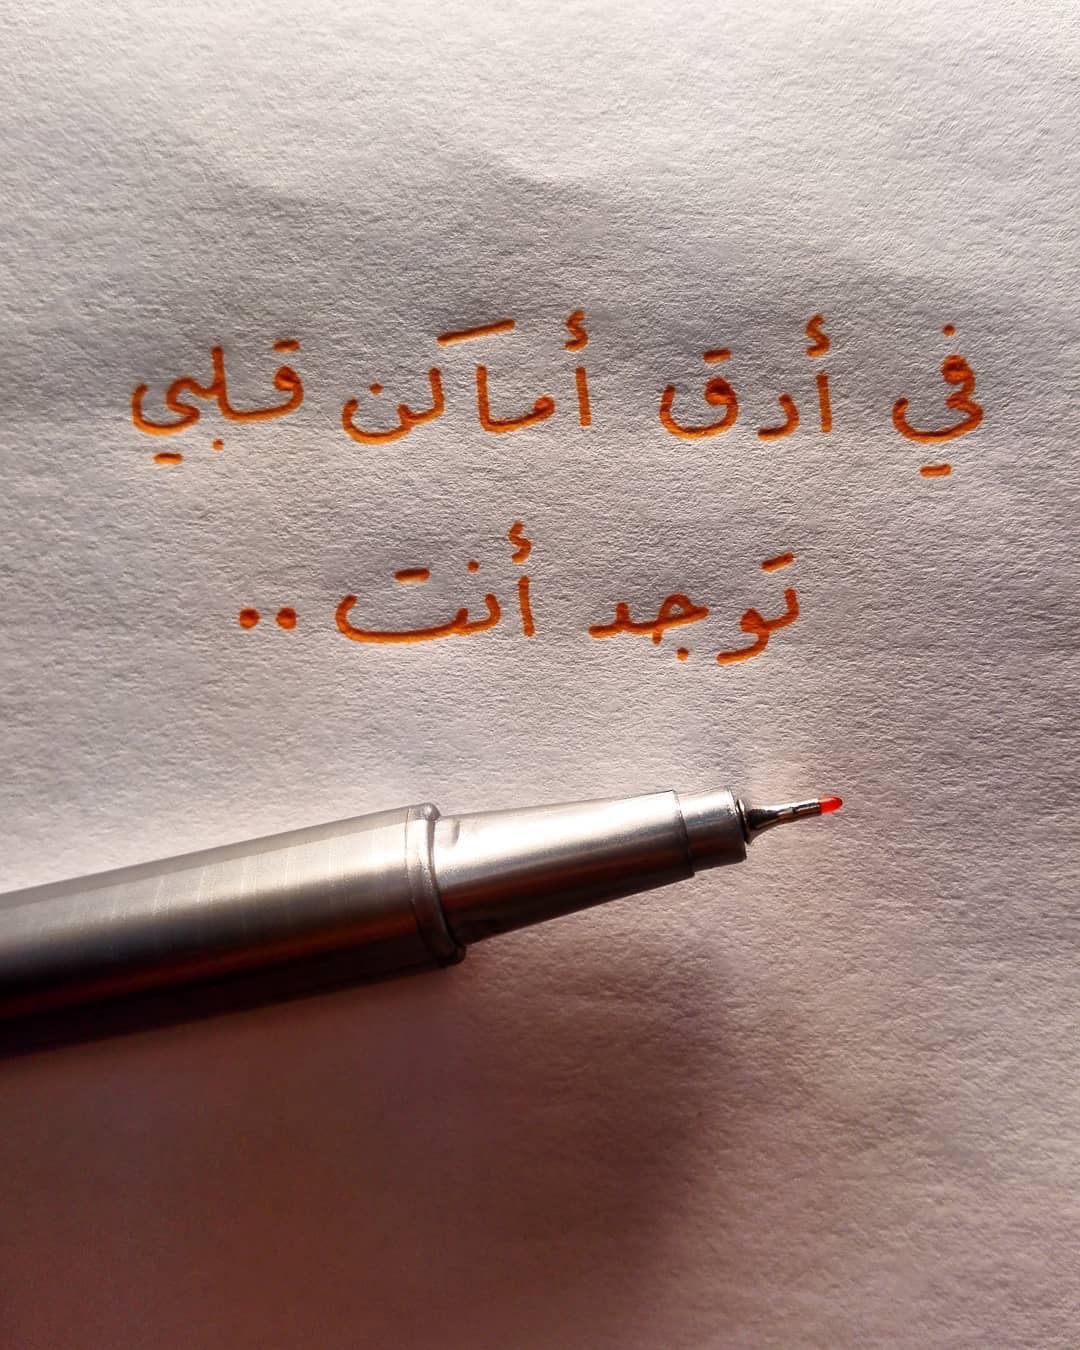 في أدق أماكن قلبي
توجد أنت ..